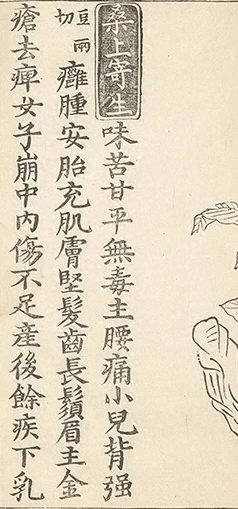 桑上寄生味苦甘平無毒主腰痛小兒背强
巨兩切癰腫安胎充肌膚堅髮齒長鬚眉主金
瘡去痺女子崩中内傷不足産後餘疾下乳